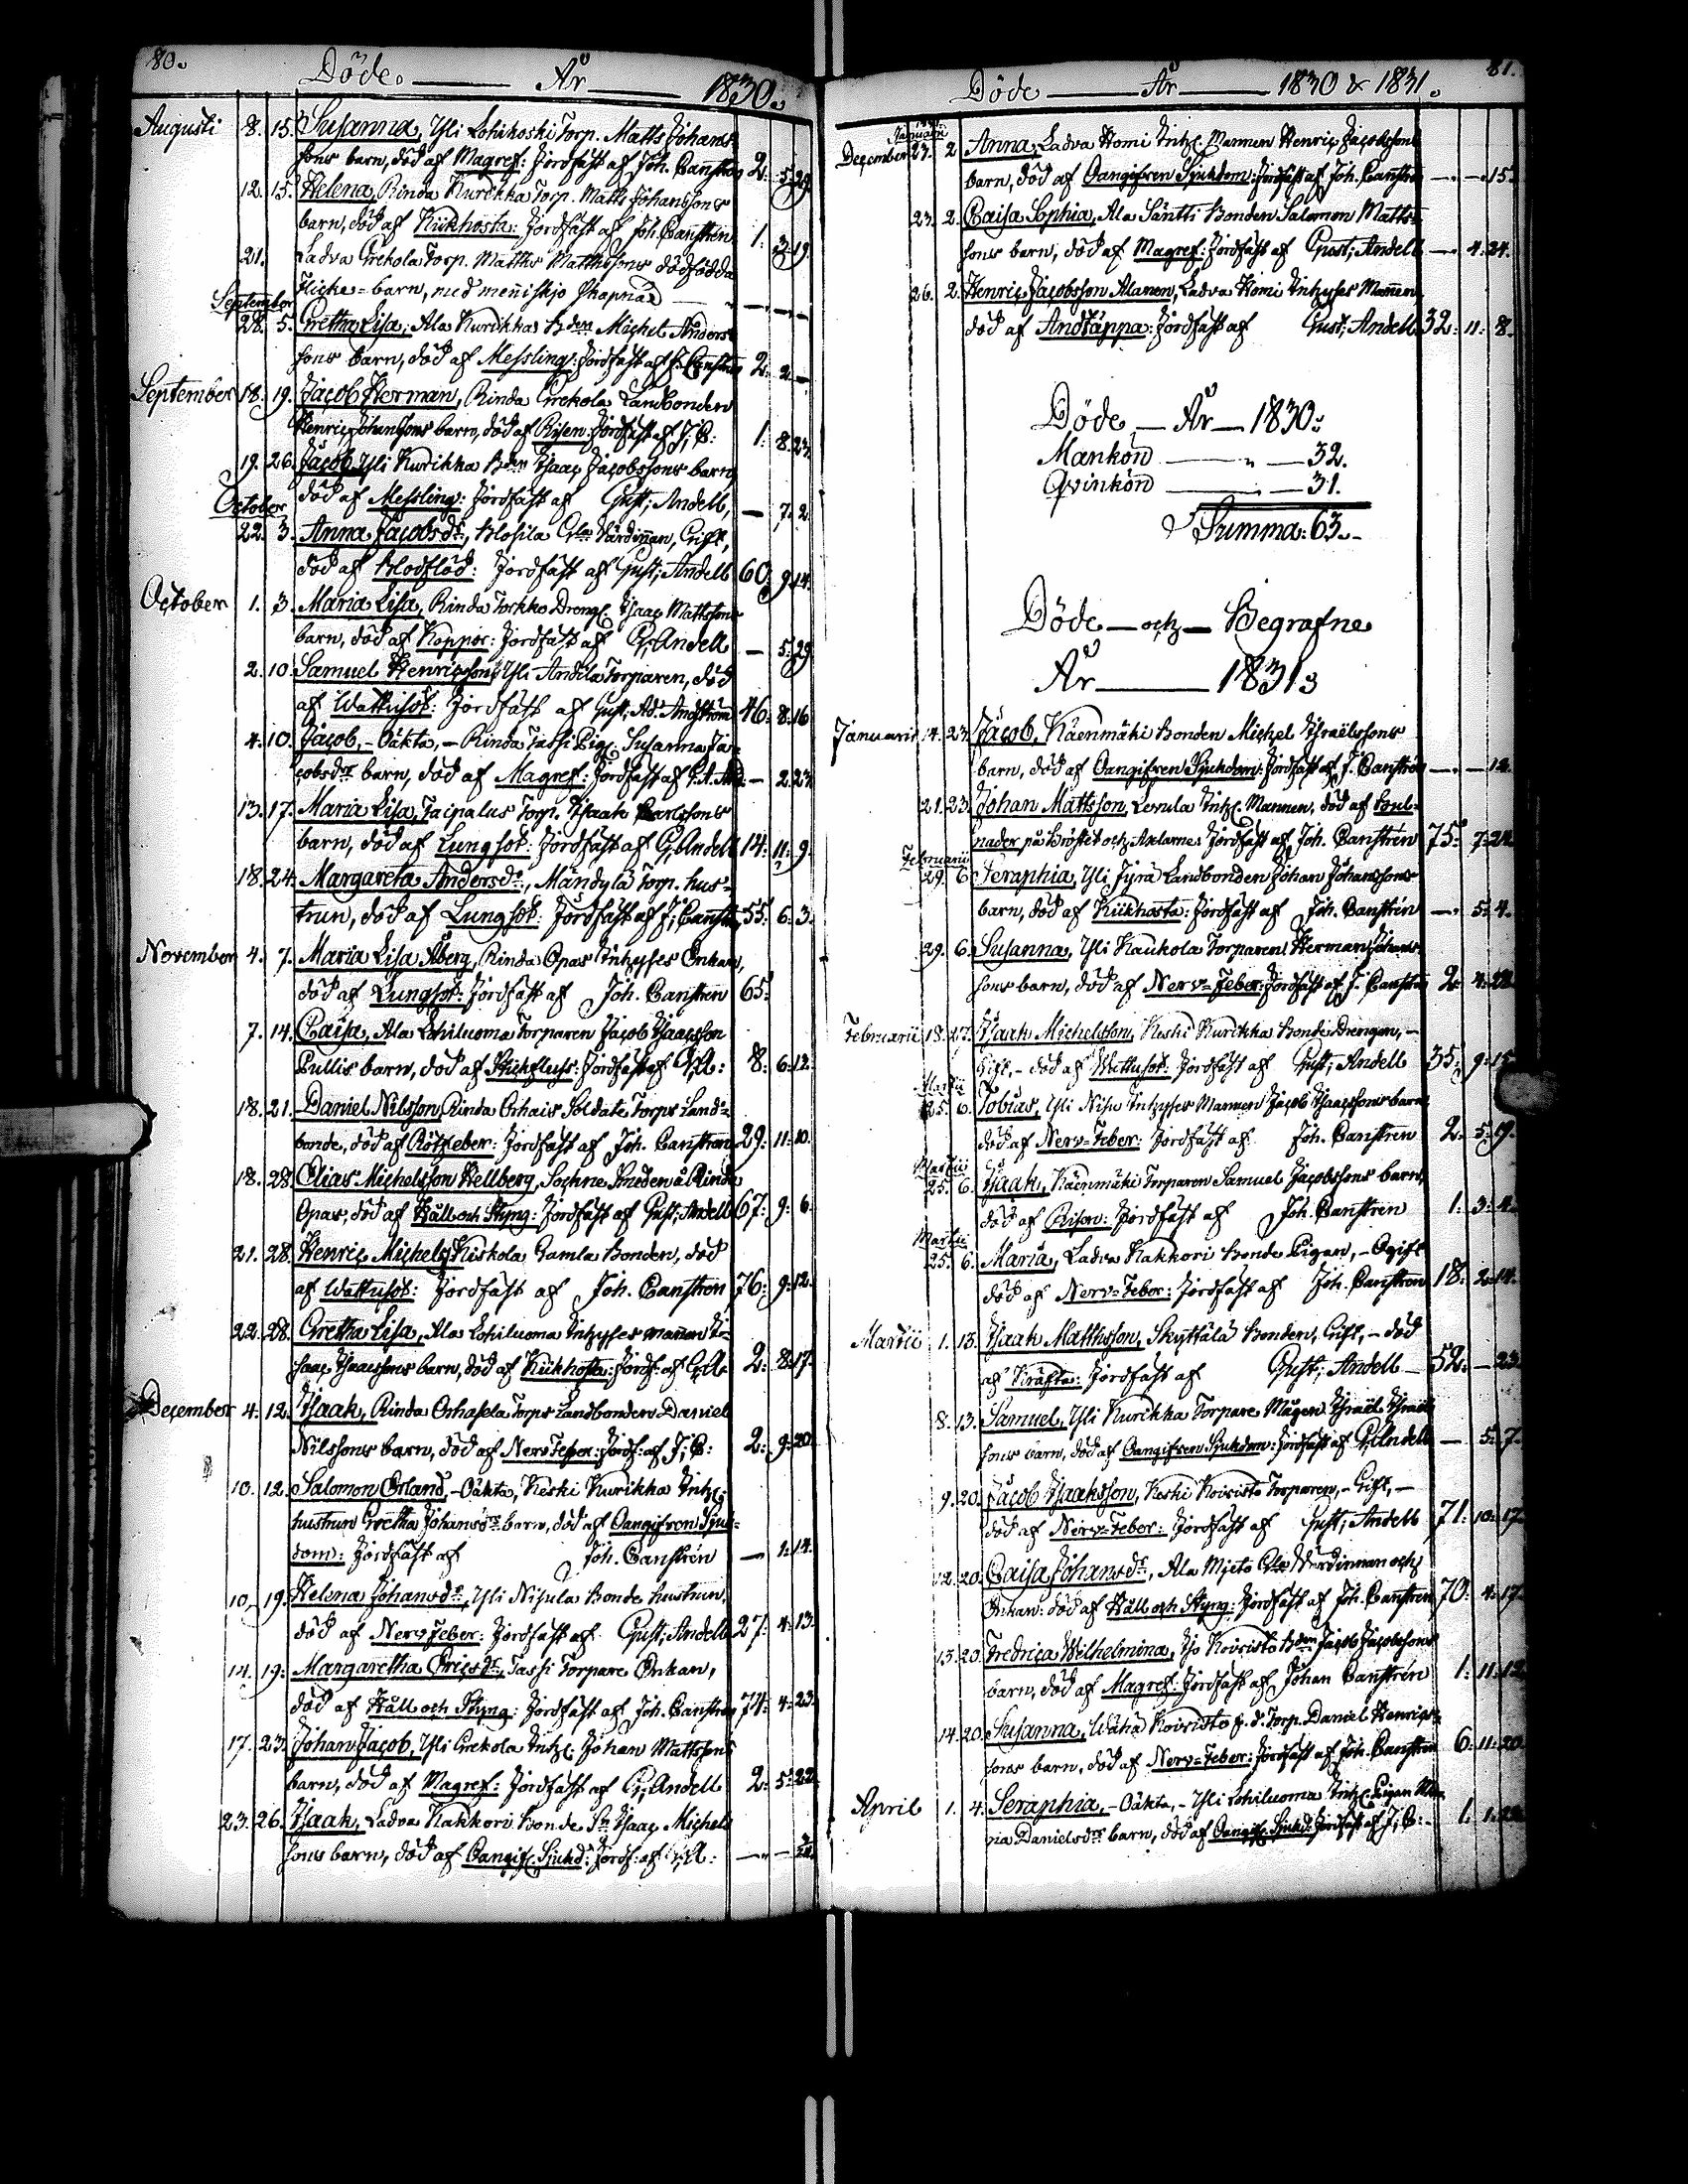 80.
Döde. År 1830.
Augusti 8. 15. Susanna, Yli Lohikoski Torp. Matts Johans
sons barn, död af Magref: Jordfäst af Joh. Canstrén 2. 5. 29.
12. 15. Helena, Rinda Kurikka Torp. Matts Johanssons
barn, död af Kikhosta: Jordfäst af Joh. Canstrén 1. 3. 19.
21. Ladva Grekola Torp. Matths Matthssons dödfödda
Flicke=barn, med menniskjo skapnad
September
28. 5. Gretha Lisa, Ala Kurikka Bden Michel Anders
sons barn, död af Messling: Jordfäst af J. Canstrén 2. 2. —
September 18. 19. Jacob Herman, Rinda Grekola Landbonden
Henric Johanssons barn, död af Risen: Jordfäst af J; C: 1. 8. 23.
19. 26. Jacob, Yli Kurikka Bden Isaac Jacobssons barn,
död af Messling: Jordfäst af Gust; Andell, — 7. 2.
October
22. 3. Anna Jacobsdr, Blosila Gla Värdinnan, Gift,
död af Blodflöd: Jordfäst af Gust; Andell 60. 9. 14.
October 1. 3. Maria Lisa, Rinda Torkko Dreng. Isaac Mattssons
barn, död af Koppor: Jordfäst af G; Andell — 5. 29.
2. 10. Samuel Henricsson, Yli Andila Torparen, död
af Wattusot: Jordfäst af Gust; Ad: Andström 46. 8. 16.
4. 10. Jacob, - Oäkta, - Rinda Tassi Pig. Susanna Ja-
cobsdrs barn, död af Magref: Jordfäst af G.A. And: — 2. 23.
13. 17. Maria Lisa, Taipalus Torp. Isaak Carlssons
barn, död af Lungsot: Jordfäst af G; Andell 14. 11. 9.
18. 24. Margareta Andersdr, Mändylä Torp. hus-
trun, död af Lungsot: Jordfäst af J; Canstr. 55. 6. 3.
November 4. 7. Maria Lisa Åberg, Rinda Opas Inhyses Enkan,
död af Lungsot: Jordfäst af Joh. Canstren 65.
7. 14. Caisa, Ala Lohiluoma Torparen Jacob Isaacsson
Pullis barn, död af Stickfluss: Jordfäst af G; A: 8. 6. 12.
18. 21. Daniel Nilsson, Rinda Orhais Soldate Torps Land-
bonde, död af Rötfeber: Jordfäst af Joh. Canstren 29. 11. 10.
18. 28. Elias Michelsson Hellberg, Sockne Smeden å Rinda
Opas, död af Håll och Styng: Jordfäst af Gust; Andell 67. 9. 6.
21. 28. Henric Michels. Kiskola Gamla Bonden, död
af Wattusot: Jordfäst af Joh. Canstren 76. 9. 12.
22. 28. Gretha Lisa, Ala Lohiluoma Inhyses mannen I-
saac Isaacssons barn, död af Kikhosta: Jordf: af G; A: 2. 8. 17.
December 4. 12. Isaak, Rinda Orhasela Torps Landbonden Daniel
Nilssons barn, död af Nerv Feber: Jordf: af J; C: 2. 9. 20.
10. 12. Salomon Erland, - Oäkta, Keski Kurikka Inh.
hustrun Gretha Johansdrs barn, död af Oangifven Sjuk-
dom: Jordfäst af Joh. Canstrén — 1. 14.
10. 19. Helena Johansdr, Yli Nisula Bonde hustrun,
död af Nerv Feber: Jordfäst af Gust; Andell 27. 4. 13.
14. 19. Margaretha Ericsdr, Tassi Torpare Enkan,
död af Håll och Styng: Jordfäst af Joh. Canstren 74. 4. 23.
17. 23. Johan Jacob, Yli Grekola Inh. Johan Mattssons
barn, död af Magref: Jordfäst af G; Andell 2. 5. 22.
23. 26. Isaak, Ladva Kakkori Bonde Sn Isaac Michels
sons barn, död af Oangif. Sjukd: Jordf: af G; A:
81.
Döde År 1830 & 1831.
1831.
Januarii
December 23. 2. Anna, Ladva Homi Inh. Mannen Henric Jacobssons
barn, död af Oangifven Sjukdom: Jordfäst af Joh. Canstrén — — 15.
23. 2. Caisa Sophia, Ala Säntti Bonden Salomon Matts-
sons barn, död af Magref: Jordfäst af Gust; Andell — 4. 24.
26. 2. Henric Jacobsson Alanen, Ladva Homi Inhyses Mannen,
död af Andtäppa: Jordfäst af Gust; Andell 32. 11. 8.
Döde — År — 1830:
Mankön — 32.
Qvinkön — 31.
Summa: 63.
Döde — och — Begrafne
År — 1831
Januarii 14. 23. Jacob, Käenmäki Bonden Michel Israëlssons
barn, död af Oangifven Sjukdom: Jordfäst af J. Canstrén — — 12.
21. 23. Johan Mattsson, Levula Inh. Mannen, död af Bul-
nader på Bröstet och Axlarne: Jordfäst af Joh. Canstrén 75. 7. 24.
Februarii
29. 6. Seraphia, Yli Jyrä Landbonden Johan Johanssons
barn, död af Kikhosta: Jordfäst af Joh. Canstrén — 5. 4.
29. 6. Susanna, Yli Kaukola Torparen Herman Johans-
sons barn, död af Nerv=Feber: Jordfäst af J. Canstrén 2. 4. 28.
Februarii 18. 27. Isaak Michelsson, Keski Kurikka Bonde Drengen, -
Gift, - död af Wattusot: Jordfäst af Gust; Andell 35. 9. 15.
Martii
25. 6. Tobias, Yli Nisu Inhyses Mannen Jacob Isaacssons barn
död af Nerv=Feber: Jordfäst af Joh. Canstren 2. 5. 19.
Martii
25. 6. Isaak, Käenmäki Torparen Samuel Jacobssons barn,
död af Risen: Jordfäst af Joh. Canstren 1. 3. 4.
Martii
25. 6. Maria, Ladva Kakkori Bonde Pigan, - Ogift
död af Nerv=Feber: Jordfäst af Joh. Canstren 18. 2. 14.
Martii 1. 13. Isaak Matthsson, Skyttälä Bonden, Gift, - död
af Kräfta: Jordfäst af Gust; Andell — 52. — 23.
8. 13. Samuel, Yli Kurikka Torpare Mågen Israël Israëls
sons barn, död af Oangifven Sjukdom: Jordfäst af G; Andell — 5. 7.
9. 20. Jacob Isaaksson, Keski Koivisto Torparen, - Gift, -
död af Nerv=Feber: Jordfäst af Gust; Andell 71. 10. 17.
12. 20. Caisa Johansdr, Ala Mjeto Gla Värdinnan och
Enkan: död af Håll och Styng: Jordfäst af Joh. Canstren 70. 4. 17.
13. 20. Fredrica Wilhelmina, Iso Koivisto Bden Jacob Jacobssons
barn, död af Magref: Jordfäst af Johan Canstrén 1. 11. 12.
14. 20. Susanna, Wähä Koivisto f. d. Torp. Daniel Henrics-
sons barn, död af Nerv=Feber: Jordfäst af Joh. Canstren 6. 11. 20.
April 1. 4. Seraphia, - Oäkta, - Yli Lohiluoma Inh. Pigan Ma-
ria Danielsdrs barn, död af Oangif. Sjukd: Jordfäst af J; C: 1. 1.